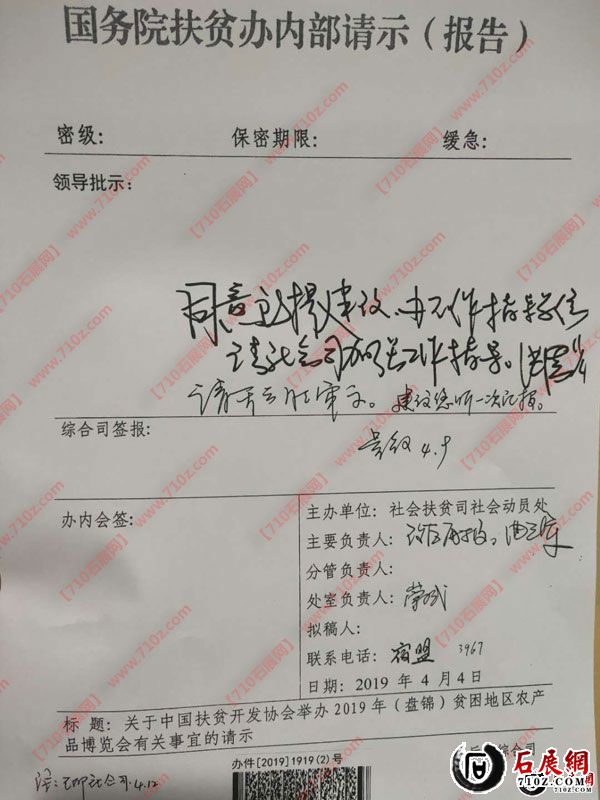 国务院扶贫办内部请示（报告）
密级：　保密期限：　缓急：
领导批示：
同意所提建议，办不作指导单位
请社会司加强工作指导。
综合司签报：
4.9
办内会签：
主办单位：社会扶贫司社会动员处
主要负责人：
分管负责人：
处室负责人：
拟稿人：
联系电话：宿盟 3967
日期：2019 年 4 月 4 日
标 题：关于中国扶贫开发协会举办 2019 年（盘锦）贫困地区农产
品博览会有关事宜的请示
办件[2019]1919(2)号
综合司
4.12
【710石展网】www.710z.com
石展網
710Z.COM